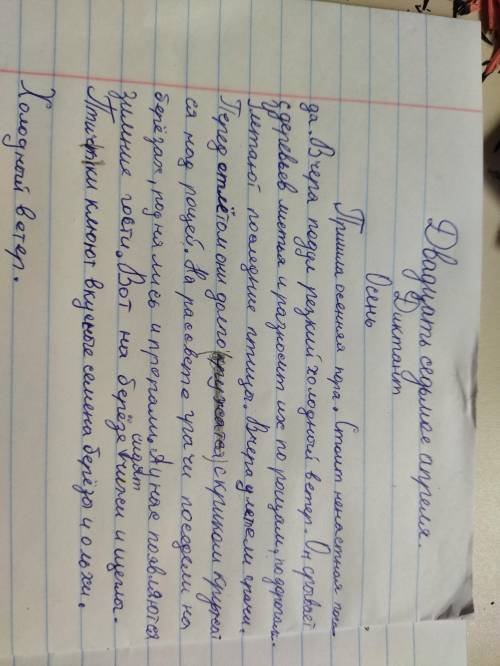 Двадцать седьмое апреля.
Диктант
Осень
Пришла осенняя пора. Стоит ненастная пого-
да. Вчера подул резкий холодной ветер. Он срывает
с деревьев листья и разносит их по рощам, поддувал.
Улетают последние птицы. Вчера улетели грачи.
Перед отлётом они долго (кружатся) с криком кружат
ся над рощей. На рассвете грачи посодели на
берёзах, поднялись и пропали. А у нас появляются
зимние гости. Вот на берёзе сидят чижи и щегла.
Птички клюют вкусные семена берёзы и ольхи.
Холодный ветер.